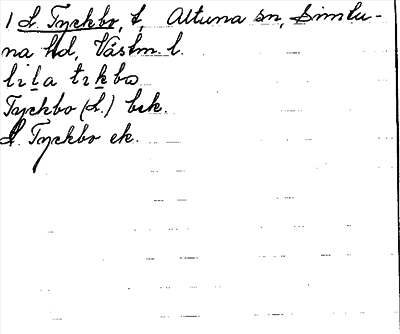 1 L. Tyckbo, t, Altuna sn, Simtu-
na hd, Västm. l.
lila tykbo
Tyckbo (L.) bek.
L. Tyckbo ek.